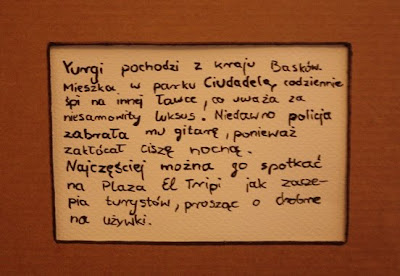 Yurgi pochodzi z kraju Basków.
Mieszka w parku Ciudadela, codziennie
śpi na innej ławce, co uważa za
niesamowity luksus. Niedawno policja
zabrała mu gitarę, ponieważ
zakłócał ciszę nocną.
Najczęściej można go spotkać
na Plaza El Tripi jak zacze-
pia turystów, prosząc o drobne
na używki.